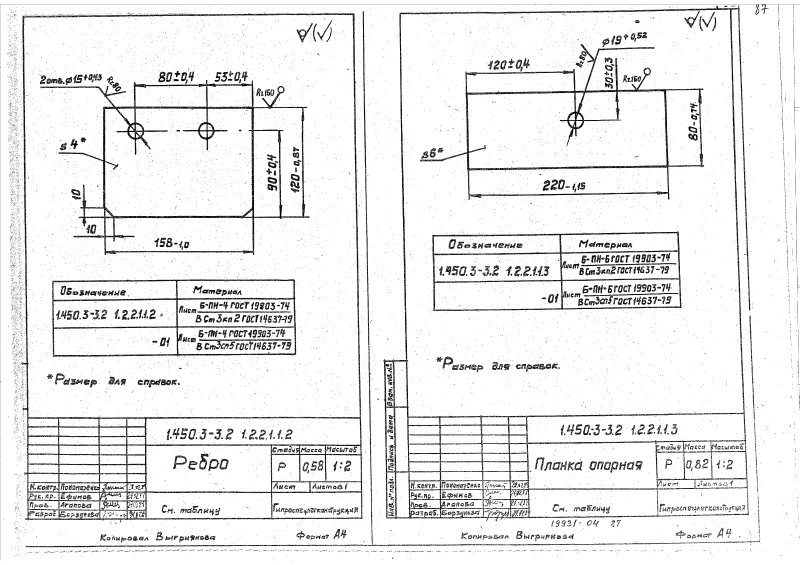 87
√(√)
2отв.φ15+0,43
Rz80
80±0,4
53±0,4
Rz160
s4*
90±0,4
120-0,87
10
10
158-1,0
Обозначение Материал
1.450.3-3.2 1.2.2.1.1.2 Лист Б-ПН-4 ГОСТ 19903-74
ВСт3кп2 ГОСТ14637-79
-01 Лист Б-ПН-4 ГОСТ19903-74
ВСт3сп5ГОСТ14637-79
*Размер для справок.
1.450.3-3.2 1.2.2.1.1.2
Ребро
Стадия Масса Масштаб
Р 0,58 1:2
Лист Листов1
Н.контр. Пономарёнко
Рук.пр. Ефимов
Пров. Агапова
Разраб. Борзунова
См. таблицу
Гипроспецлегконструкция
Копировал Выгриянова Формат А4
√(√)
φ19+0,52
Rz80
120±0,4
30±0,3
Rz160
s6*
80-0,74
220-1,15
Обозначение Материал
1.450.3-3.2 1.2.2.1.1.3 Лист Б-ПН-6ГОСТ 19903-74
ВСт3кп2ГОСТ14637-79
-01 Лист Б-ПН-6ГОСТ 19903-74
ВСт3сп5ГОСТ14637-79
*Размер для справок.
Взам. инв.№
Подпись и дата
Инв.№ подл.
1.450.3-3.2 1.2.2.1.1.3
Планка опорная
Стадия Масса Масштаб
Р 0,82 1:2
Лист Листов1
Н.контр. Пономарёнко
Рук.пр. Ефимов
Пров. Агапова
Разраб. Борзунова
См. таблицу
Гипроспецлегконструкция
19931-04 27
Копировал Выгриянова Формат А4